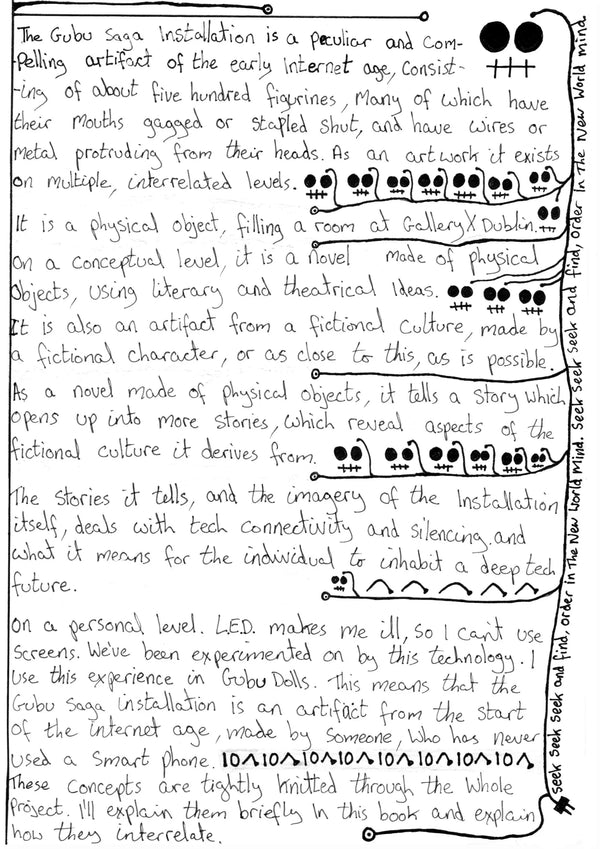 The Gubu Saga Installation is a peculiar and com-
-pelling artifact of the early internet age, consist-
-ing of about five hundred figurines, Many of which have
their mouths gagged or stapled shut, and have wires or
metal protruding from their heads. As an artwork it exists
on multiple, interrelated levels.
It is a physical object, filling a room at Gallery X Dublin.
On a conceptual level, it is a novel made of physical
Objects, using literary and theatrical Ideas.
It is also an artifact from a fictional culture, made by
a fictional character, or as close to this, as is possible.
As a novel made of physical objects, it tells a story which
opens up into more stories, which reveal aspects of the
fictional culture it derives from.
The stories it tells, and the imagery of the Installation
itself, deals with tech connectivity and silencing and
what it means for the individual to inhabit a deep tech
future.
On a personal level. L.E.D. makes me ill, so I can't use
screens. We've been experimented on by this technology. I
use this experience in Gubu Dolls. This means that the
Gubu Saga installation is an artifact from the start
of the internet age, made by someone, who has never
used a smart phone. 10^10^10^10^10^10^10^10^10^
These concepts are tightly knitted through the whole
Project. I'll explain them briefly in this book and explain
how they interrelate.
Seek Seek Seek and find, order in The New World Mind. Seek Seek Seek and find, order In The New World mind